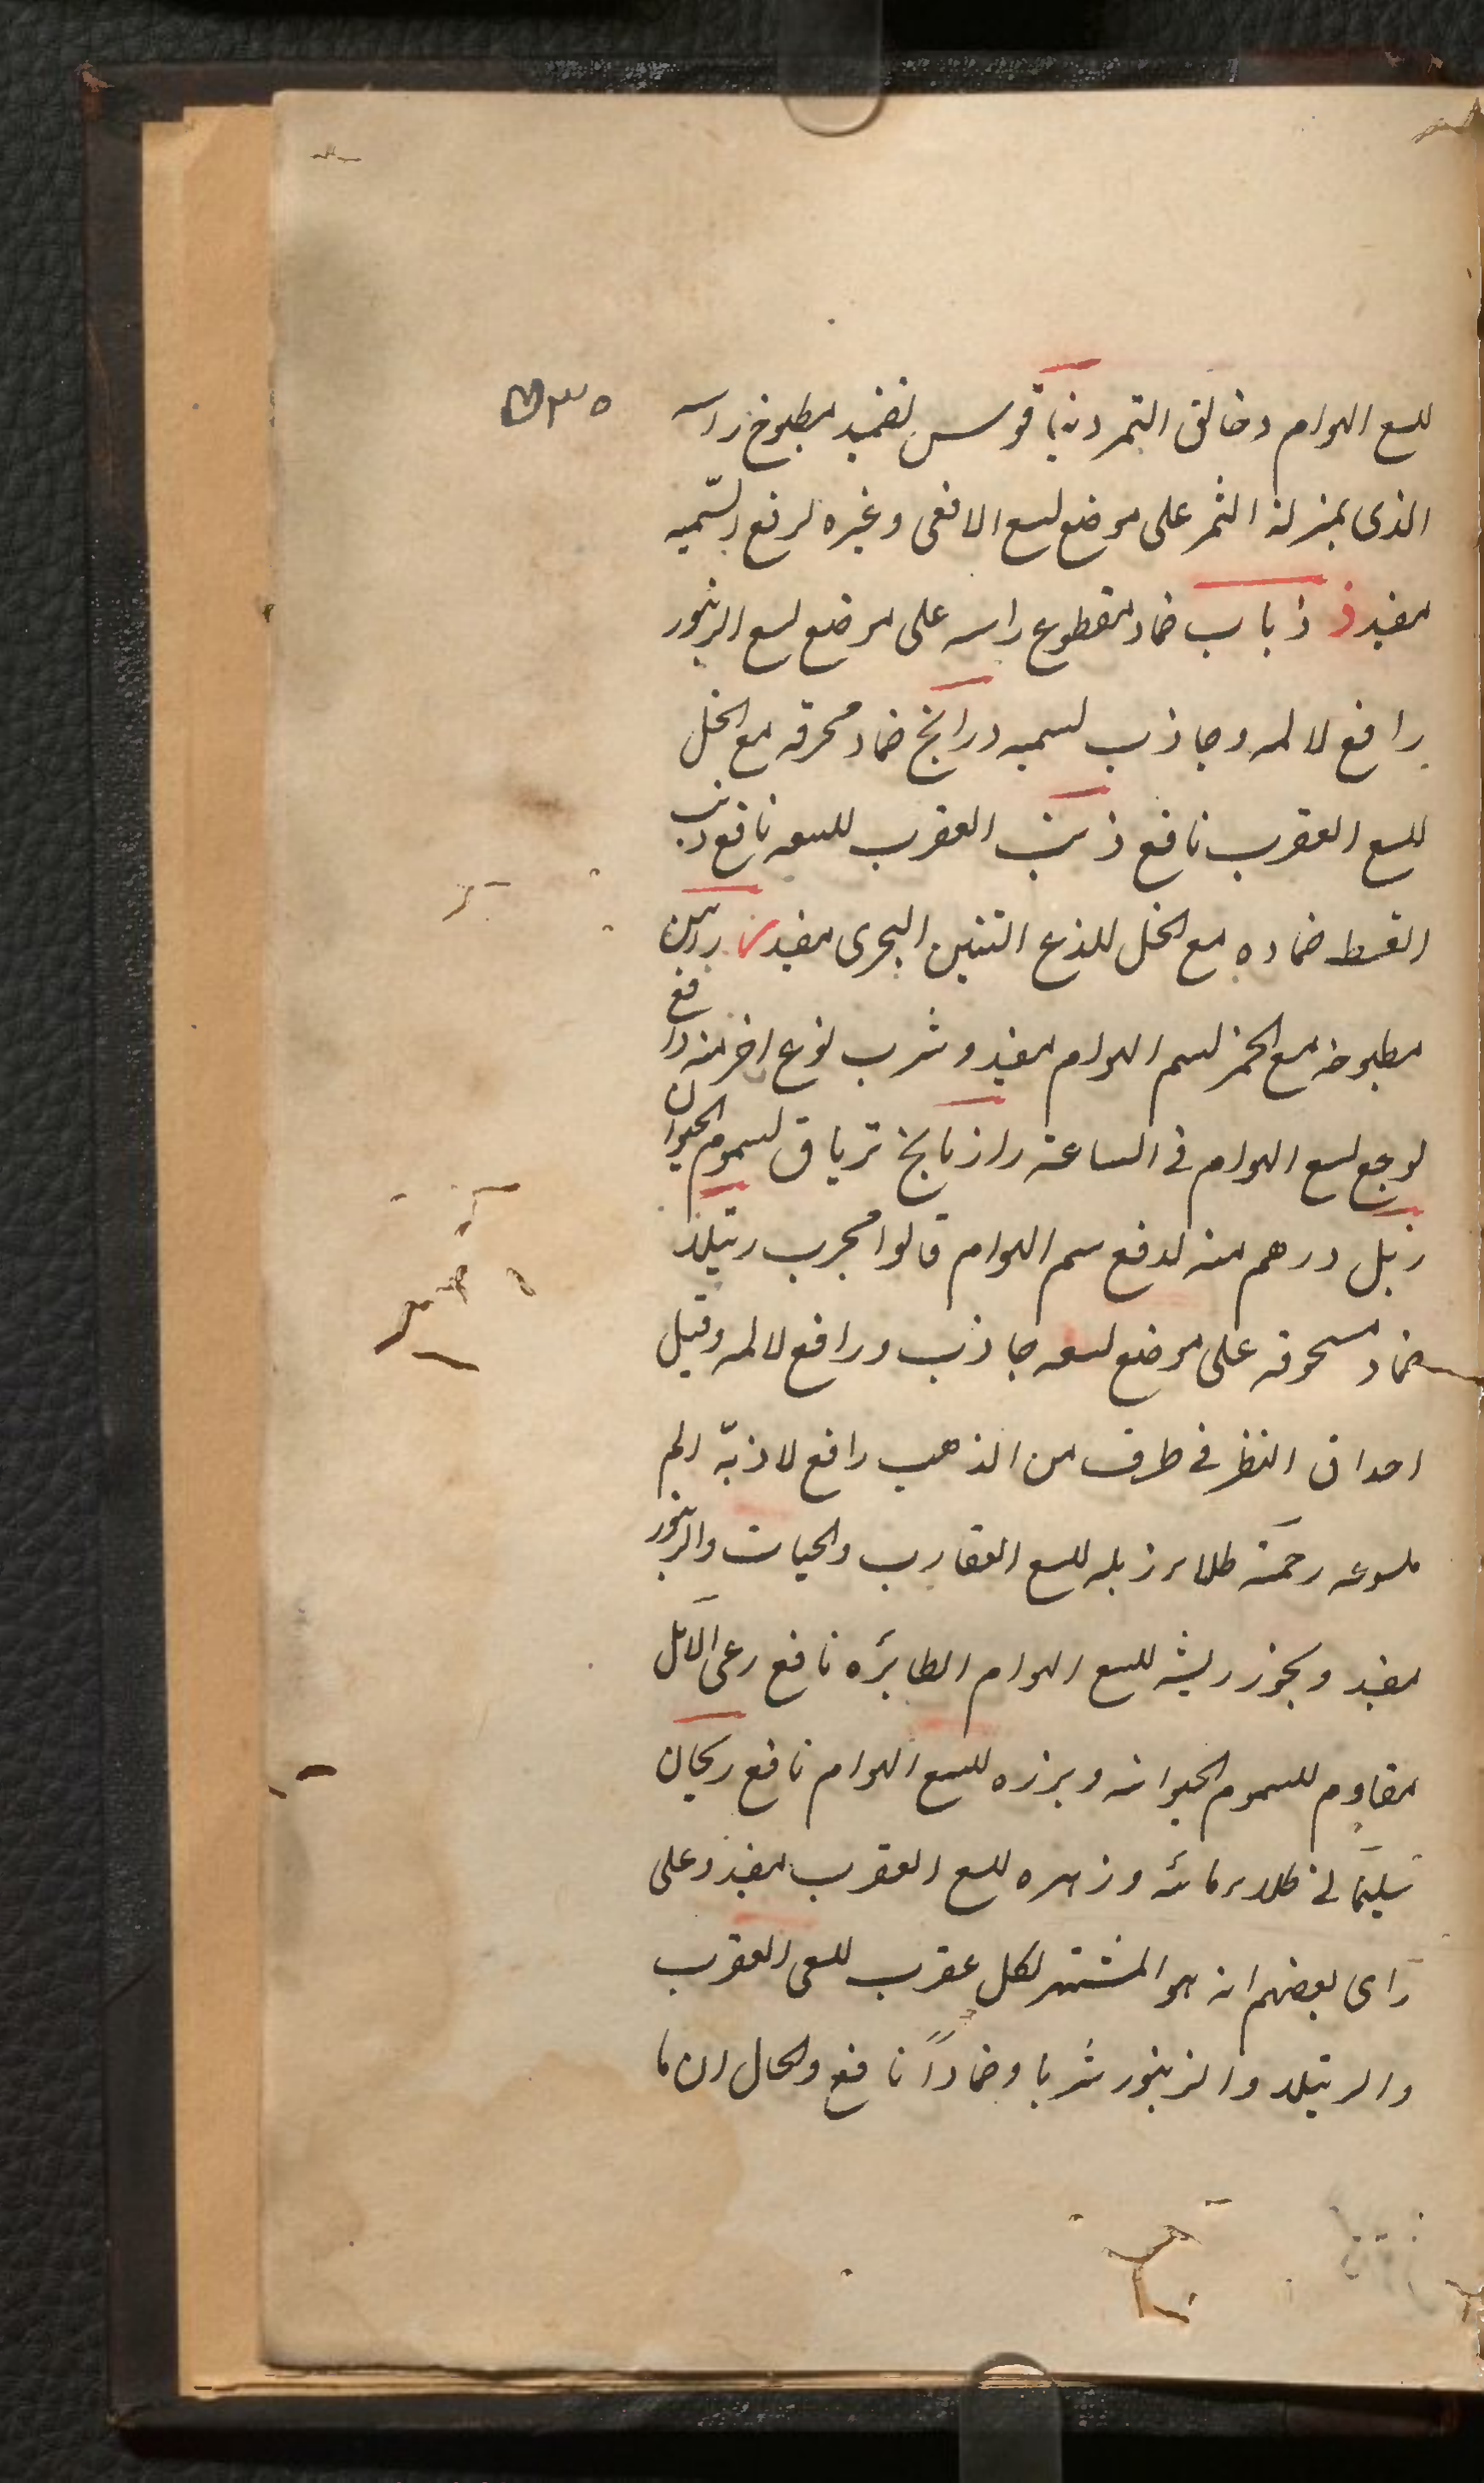 للسع الهوام دخالتى التمر دنياقوس تضميد مطبوخ راسه
الذى بمنزلة الثمر على موضع لسع الافعى وغيره لرفع السّميه
مفيد ذ ذباب ضماد مقطوع راسه على موضع لسع الزنبور
رافع لالمه وجاذب لسميه درانج ضماد محرقه مع الخل
للسع العقرب نافع ذنب العقرب للسعه نافع ذنب
القسط ضماده مع الخل للذع التنين البحرى مفيد ر راسن
مطبوخه مع الخمر لسم الهوام مفيد وشرب نوع اخر منه رافع
لوجع لسع الهوام فى الساعة رازنانج ترياق لسموم الحيوان
زبل درهم منه لدفع سم الهوام قالوا مجرب رتيلا
ضماد مسحوقه على موضع لسعه جاذب ورافع لالمه وقيل
احداق النظر فى طرف من الذهب رافع لاذيّة الم
ملسوعه رخمة طلاء زبله للسع العقارب والحيات والزنبور
مفيد وبخور ريشه للسع الهوام الطايره نافع رعى الابل
مقاوم للسموم الحيوانيه وبزره للسع الهوام نافع ريحان
سليمانى طلاء مائه وزهره للسع العقرب مفيد وعلى
راى بعضهم انه هو المشتهر لكل عقرب للسعى العقرب
والرتيلا والزنبور شربا وضماداً نافع والحال ان ما